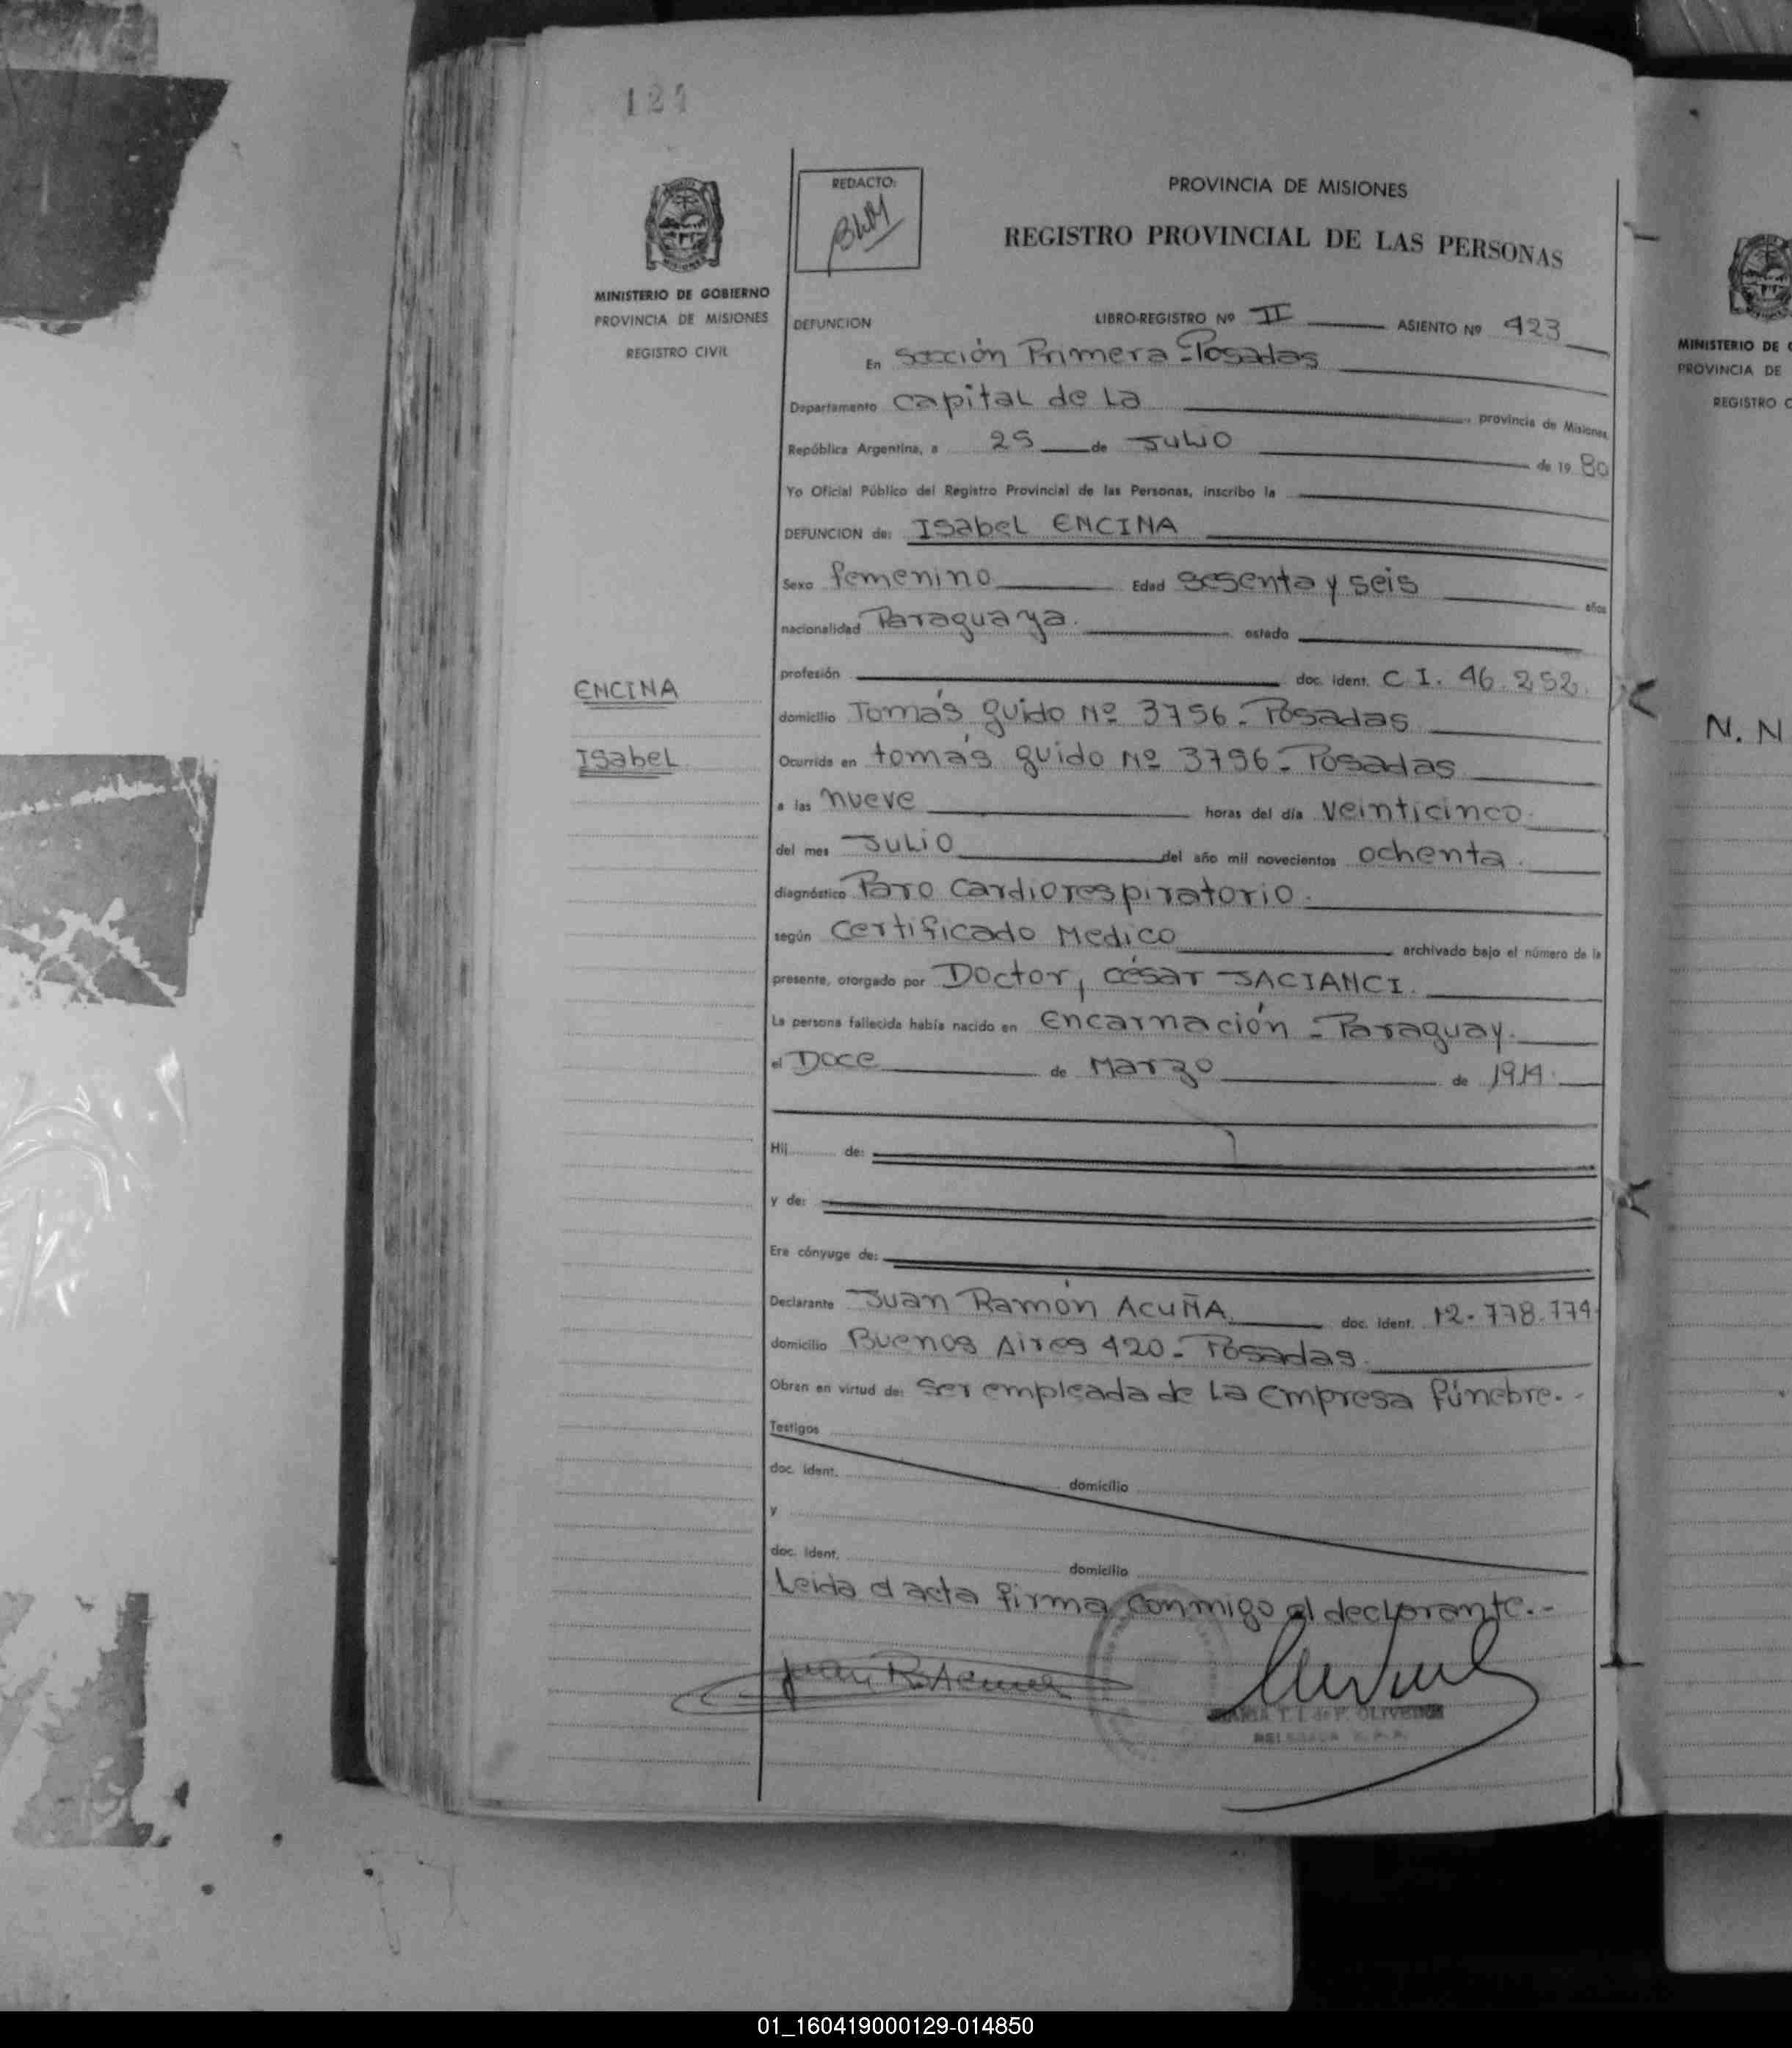 124
REDACTO:
PROVINCIA DE MISIONES
REGISTRO PROVINCIAL DE LAS PERSONAS
MINISTERIO DE GOBIERNO
PROVINCIA DE MISIONES
REGISTRO CIVIL
DEFUNCION LIBRO-REGISTRO Nº II ASIENTO Nº 423
En Sección Primera - Posadas
Departamento Capital de La provincia de Misiones
República Argentina, a 25 de Julio de 1980
Yo Oficial Público del Registro Provincial de las Personas, inscribo la
DEFUNCION de: Isabel ENCINA
Sexo femenino Edad sesenta y seis años
nacionalidad Paraguaya. estado
profesión doc. ident. C.I. 46.252.
ENCINA
Isabel
domicilio Tomás guido Nº 3756 - Posadas
Ocurrida en tomás guido Nº 3756 - Posadas
a las nueve horas del día veinticinco
del mes Julio del año mil novecientos ochenta.
diagnóstico Paro Cardiorespiratorio.
según Certificado Medico archivado bajo el número de la
presente, otorgado por Doctor, césar JACIANCI.
La persona fallecida había nacido en Encarnación - Paraguay.
el Doce de Marzo de 1914.
Hij de:
y de:
Era cónyuge de:
Declarante Juan Ramón ACUÑA. doc. ident. 12.778.774
domicilio Buenos Aires 420 - Posadas.
Obran en virtud de: Ser empleada de La Empresa fúnebre.-
Testigos
doc. ident. domicilio
y
doc. ident. domicilio
Leida el acta firma conmigo el declarante.-
Juan R. Acuña
MARIA T. I. de F. OLIVEIRA
DELEGADA
MINISTERIO DE
PROVINCIA DE
REGISTRO C
N. N
01_160419000129-014850